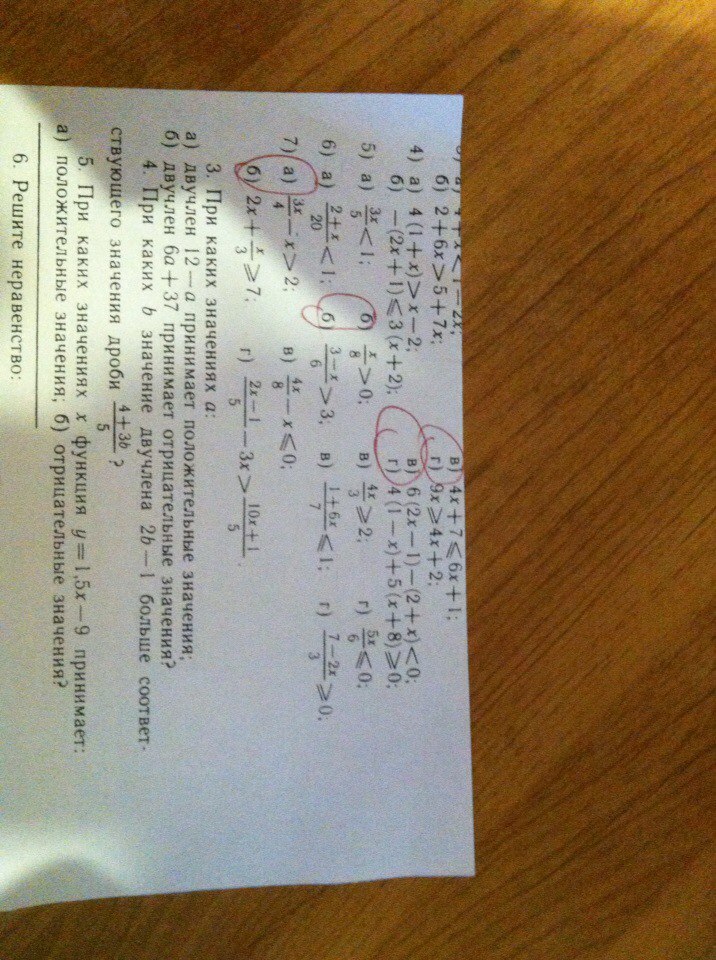 б) 2+6x>5+7x; в) 4x+7⩽6x+1;
г) 9x⩾4x+2;
4) а) 4(1+x)>x−2; в) 6(2x−1)−(2+x)<0;
б) −(2x+1)⩽3(x+2); г) 4(1−x)+5(x+8)⩾0;
5) а) 3x/5<1; б) x/8>0; в) 4x/3⩾2; г) 5x/6⩽0;
6) а) 2+x/20<1; б) 3−x/6>3; в) 1+6x/7⩽1; г) 7−2x/3⩾0;
7) а) 3x/4−x>2; в) 4x/8−x⩽0;
б) 2x+x/3⩾7; г) 2x−1/5−3x>10x+1/5.
3. При каких значениях a:
а) двучлен 12−a принимает положительные значения;
б) двучлен 6a+37 принимает отрицательные значения?
4. При каких b значение двучлена 2b−1 больше соответ-
ствующего значения дроби 4+3b/5?
5. При каких значениях x функция y=1,5x−9 принимает:
а) положительные значения; б) отрицательные значения?
6. Решите неравенство: